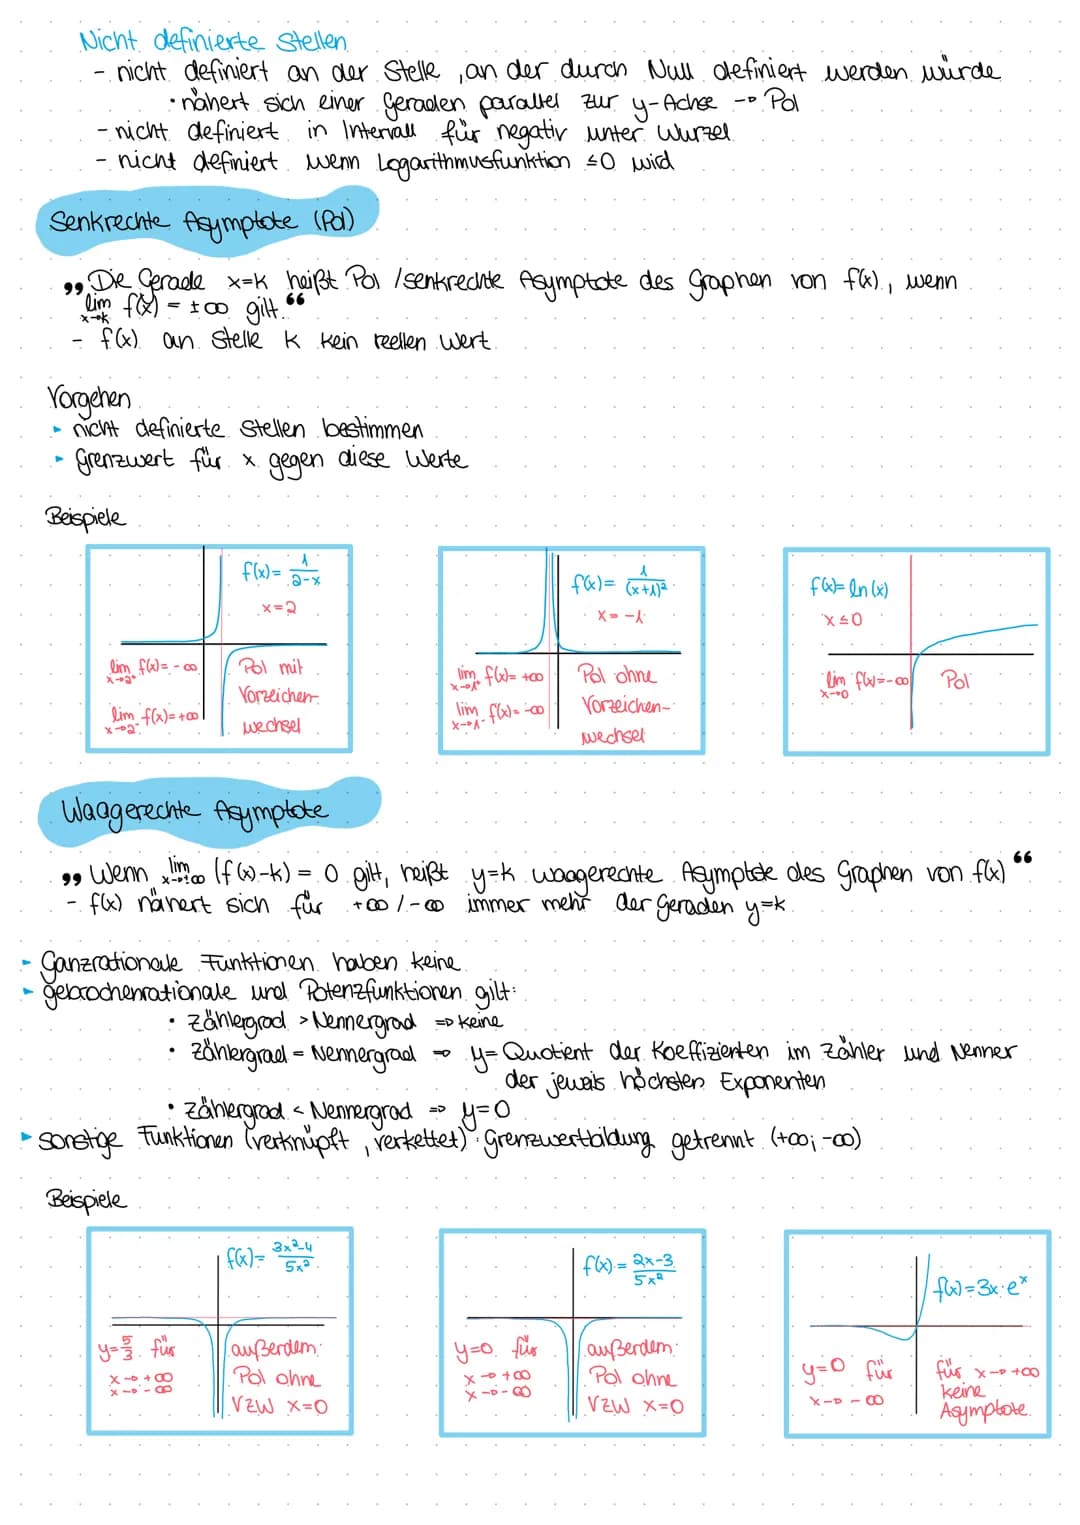 Nicht definierte Stellen
- nicht definiert an der Stelle, an der durch Null definiert werden würde
• nähert sich einer Geraden parallel zur y-Achse → Pol
- nicht definiert in Intervall für negativ unter Wurzel
- nicht definiert wenn Logarithmusfunktion ≤0 wird
Senkrechte Asymptote (Pol)
„Die Gerade x=k heißt Pol /senkrechte Asymptote des Graphen von f(x), wenn
lim x→k f(x) = ±∞ gilt.“
- f(x) an Stelle k kein reellen Wert
Vorgehen
▸ nicht definierte Stellen bestimmen
▸ Grenzwert für x gegen diese Werte
Beispiele
f(x)= 1/(2-x)
x=2
lim x→2⁺ f(x)= -∞
lim x→2⁻ f(x)=+∞
Pol mit
Vorzeichen-
wechsel
f(x)= 1/(x+1)²
x=-1
lim x→1⁺ f(x)= +∞
lim x→1⁻ f(x)= -∞
Pol ohne
Vorzeichen-
wechsel
f(x)=ln(x)
x≤0
lim x→0 f(x)=-∞
Pol
Waagerechte Asymptote
„Wenn lim x→±∞ (f(x)-k) = 0 gilt, heißt y=k waagerechte Asymptote des Graphen von f(x)“
- f(x) nähert sich für +∞/-∞ immer mehr der Geraden y=k
▸ Ganzrationale Funktionen haben keine
▸ gebrochenrationale und Potenzfunktionen gilt:
• Zählergrad > Nennergrad ⇒ keine
• Zählergrad = Nennergrad ⇒ y= Quotient der Koeffizienten im Zähler und Nenner
der jeweils höchsten Exponenten
• Zählergrad < Nennergrad ⇒ y=0
▸ sonstige Funktionen (verknüpft, verkettet): Grenzwertbildung getrennt (+∞; -∞)
Beispiele
f(x)= (3x²-4)/(5x²)
y=5/3 für
x→+∞
x→-∞
außerdem:
Pol ohne
VZW x=0
f(x)= (2x-3)/(5x²)
y=0 für
x→+∞
x→-∞
außerdem:
Pol ohne
VZW x=0
f(x)=3x·eˣ
y=0 für
x→-∞
für x→+∞
keine
Asymptote.